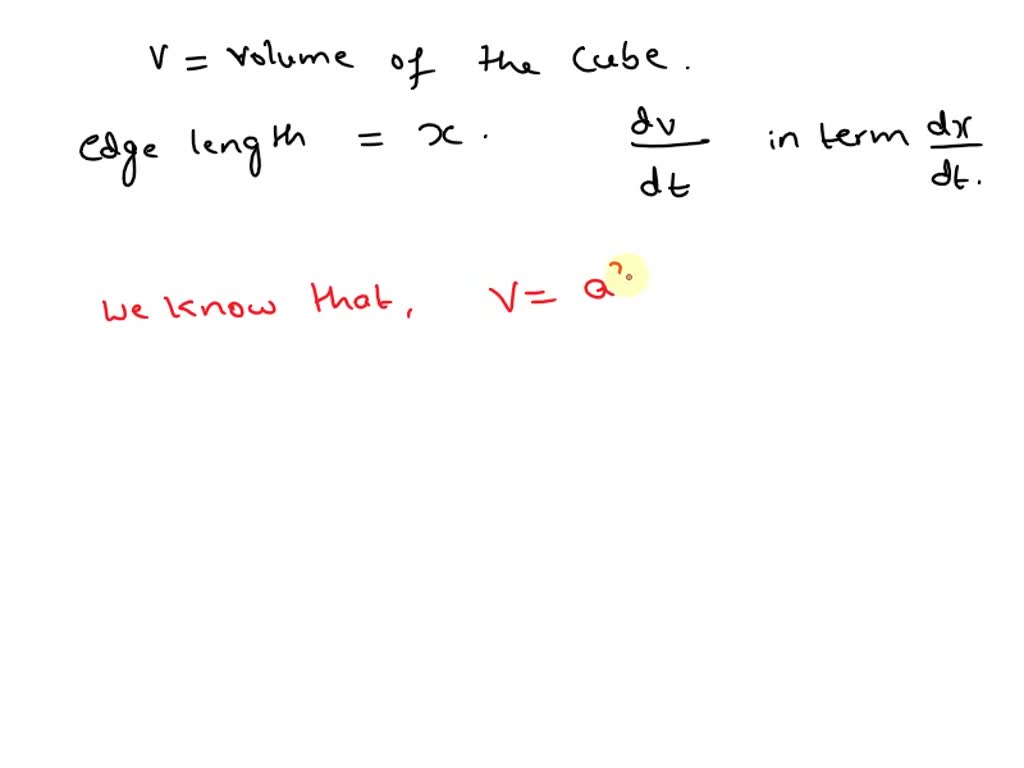 V = volume of the cube.
edge length = x. dv/dt in term dx/dt.
we know that, V = a